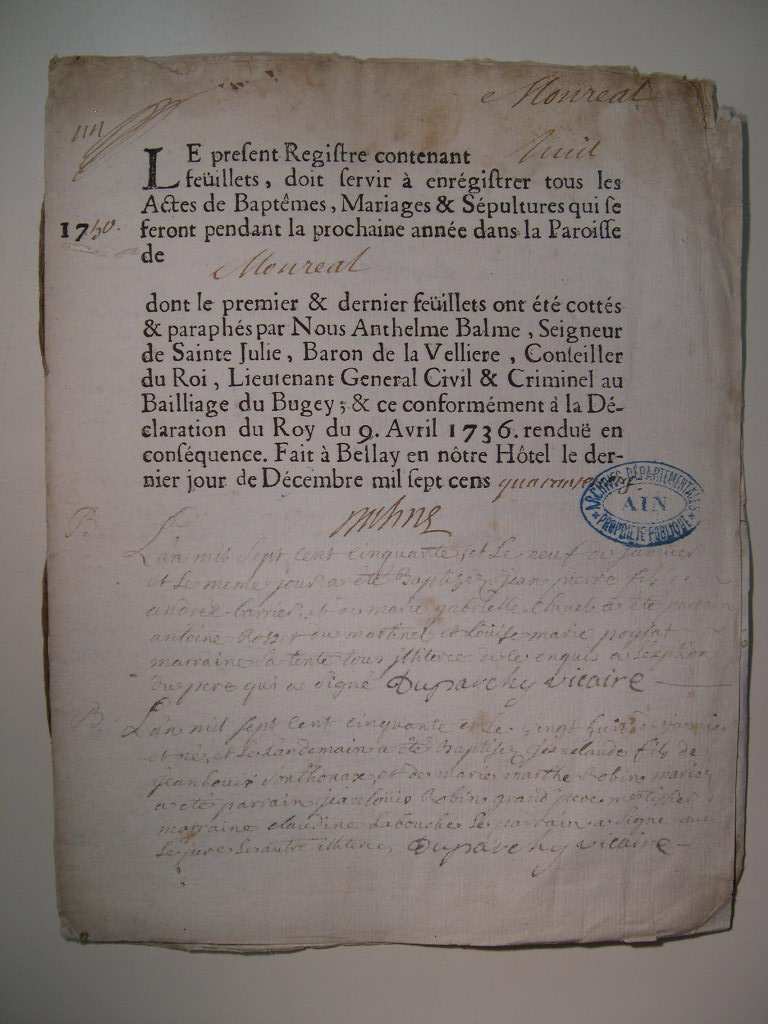 Monreal
LE preſent Regiſtre contenant huit
feüillets, doit ſervir à enrégiſtrer tous les
Actes de Baptêmes, Mariages & Sépultures qui ſe
1750. feront pendant la prochaine année dans la Paroiſſe
de
Monreal
dont le premier & dernier feüillets ont été cottés
& paraphés par Nous Anthelme Balme, Seigneur
de Sainte Julie, Baron de la Velliere, Conſeiller
du Roi, Lieutenant General Civil & Criminel au
Bailliage du Bugey; & ce conformément à la Dé-
claration du Roy du 9. Avril 1736. renduë en
conſéquence. Fait à Bellay en nôtre Hôtel le der-
nier jour de Décembre mil ſept cens quarante neuf
ARCHIVES DÉPARTEMENTALES
AIN
PROPRIÉTÉ PUBLIQUE
B.
L'an mil sept cent cinquante et le neuf de janvier
et le meme jour a été Baptizé jean pierre fils de
andré et de marie gabrielle a été parrain
antoine et louise marie
marraine sa tente tous illiterez de ce enquis a
du pere qui a signé Duparchy vicaire
B.
L'an mil sept cent cinquante et le vingt huit janvier
et né, et le landemain a été baptisé claude fils de
jean louis et de marie marthe Robin mariez
a été parrain jean louis Robin grand pere
marraine claudine le parrain a signé
le pere les autre illiterez Duparchy vicaire